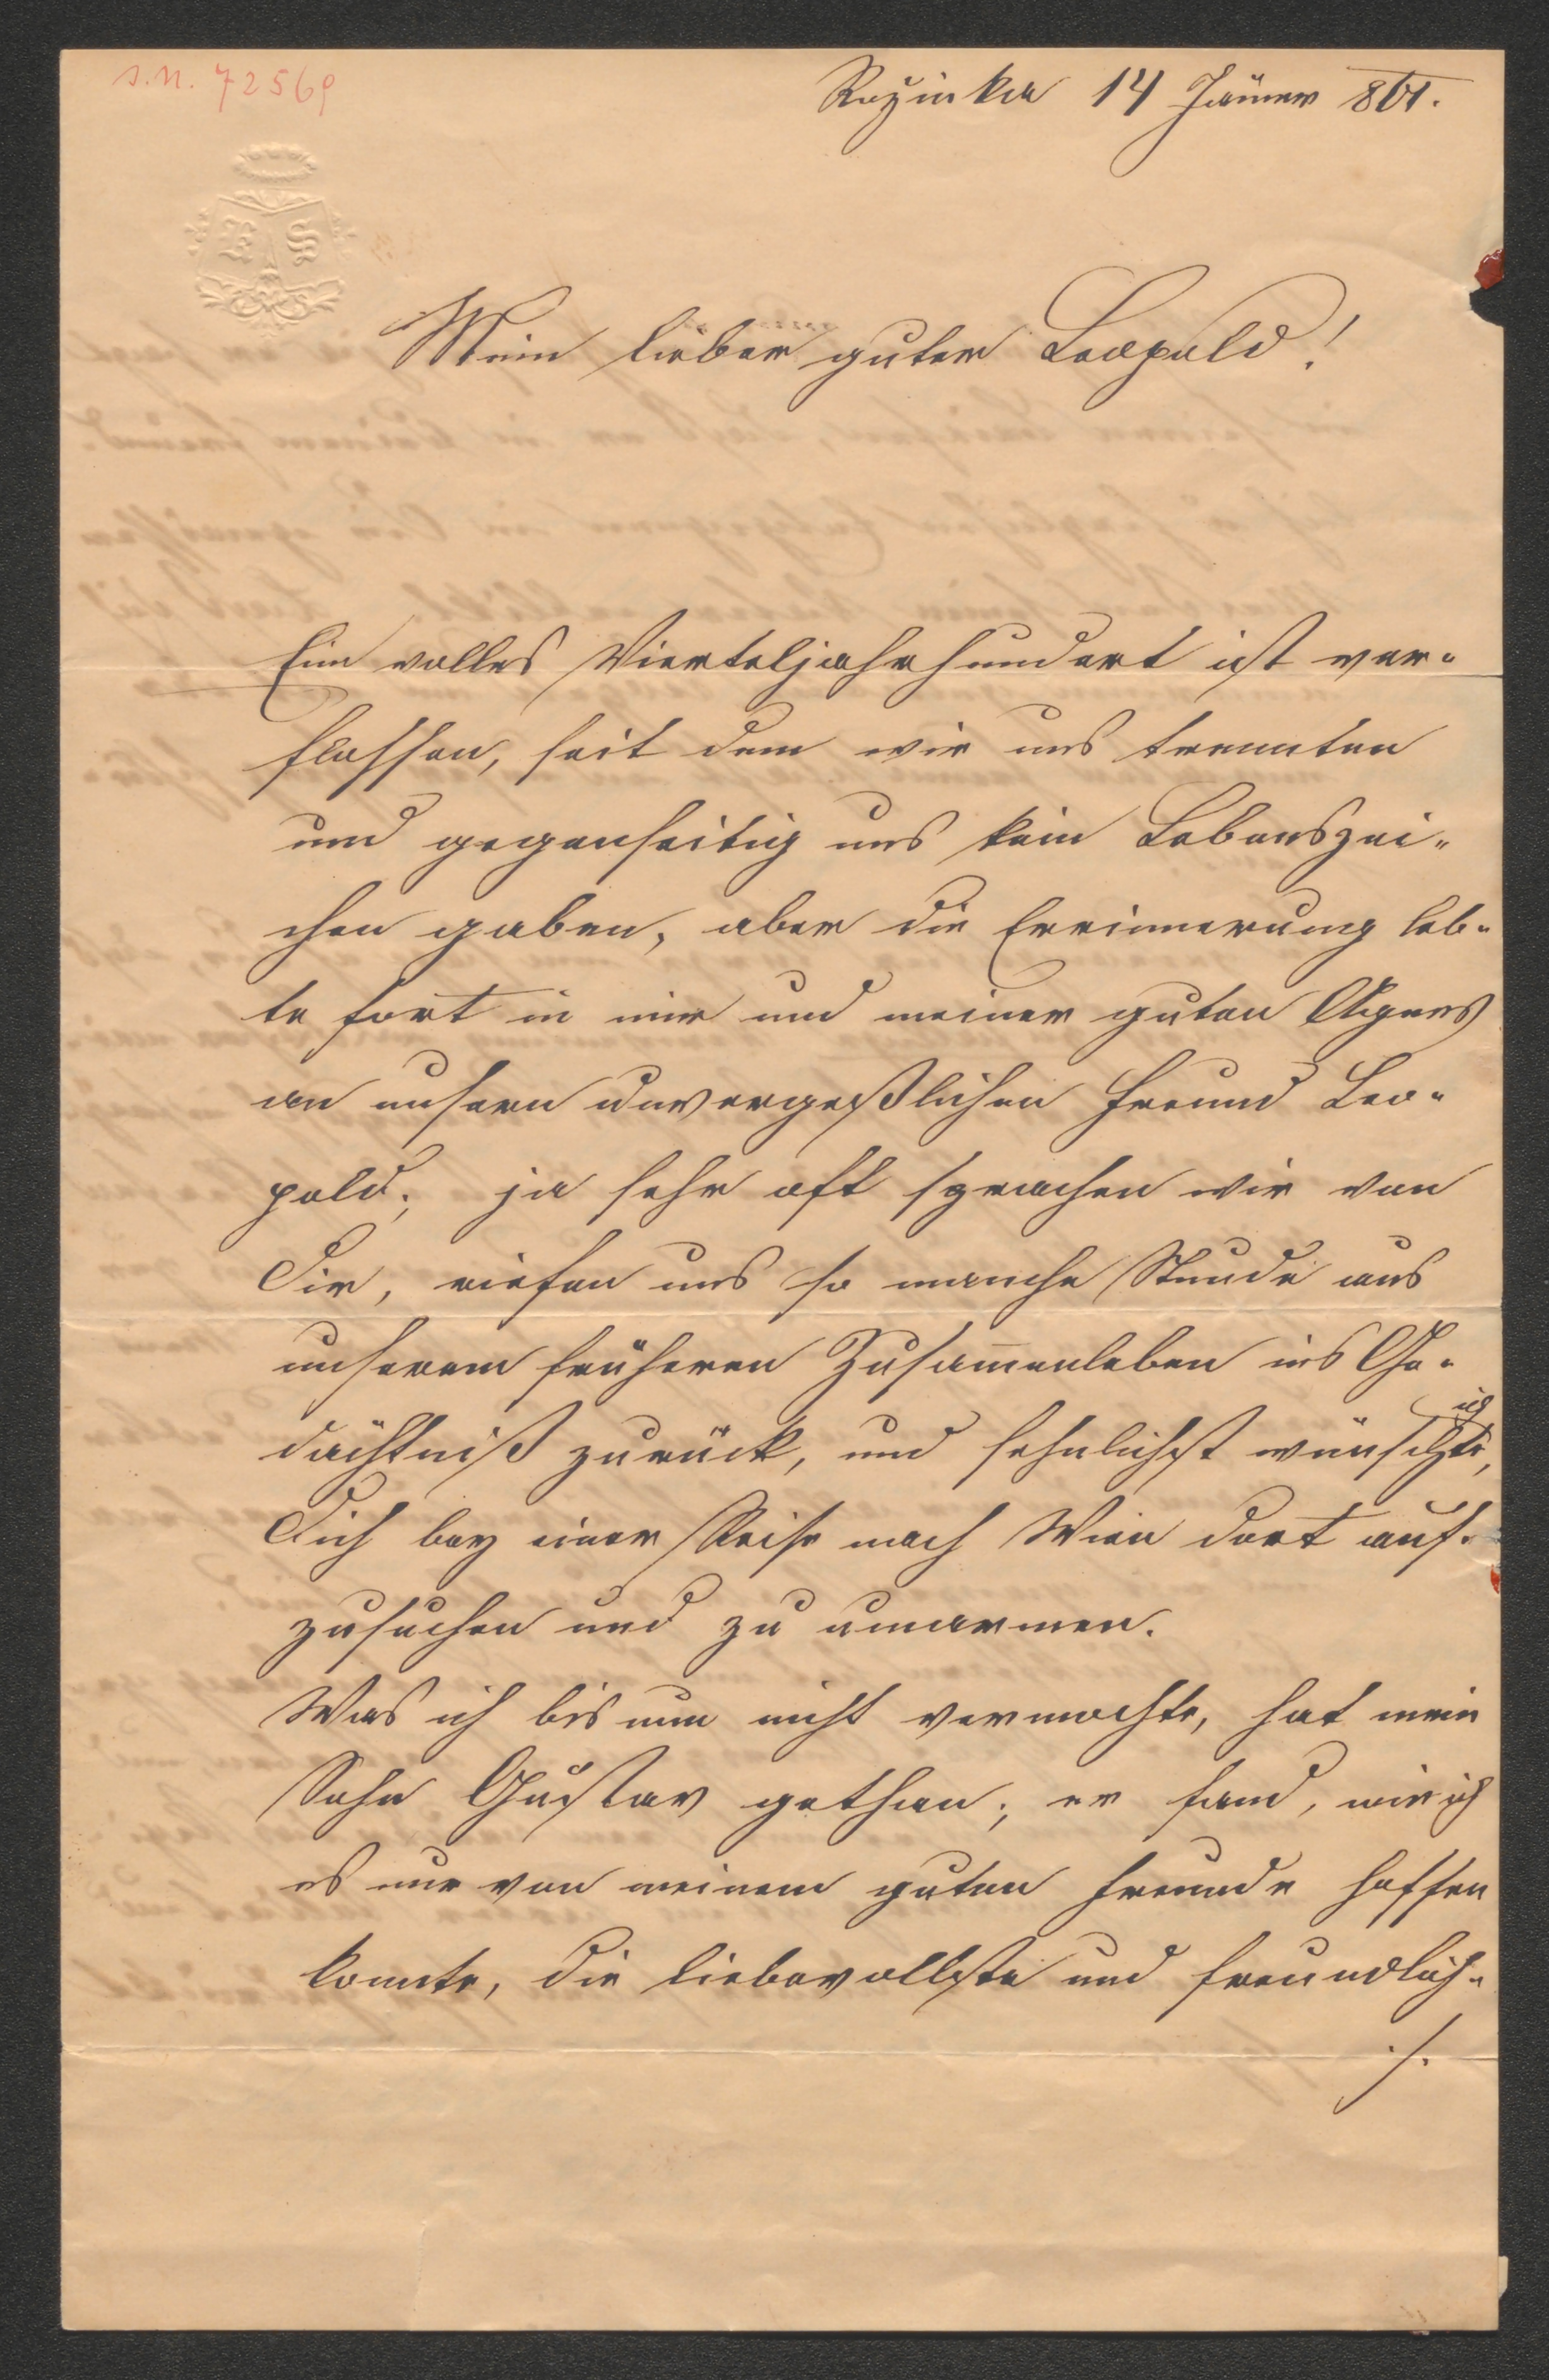 J.N. 72569
Rožinka 14 Jänner 861.
K S
Mein lieber guter Leopold!
Ein volles Vierteljahrhundert ist ver-
flossen, seit dem wir uns trennten
und gegenseitig uns kein Lebenszei-
chen gaben, aber die Errinnerung leb-
te fort in mir und meiner guten Agnes
an unsern unvergeßlichen Freund Leo-
pold; ja sehr oft sprachen wir von
Dir, riefen uns so manche Stunde aus
unserem früheren Zusam̅enleben ins Ge-
dächtniß zurück, und sehnlichst wünschte ich,
Dich bey einer Reise nach Wien dort auf-
zusuchen und zu umarmen.
Was ich bis nun nicht vermochte, hat mein
Sohn Gustav gethan; er fand, wie ich
es nur von meinem guten Freunde hoffen
konnte, die liebevollste und freundlich-
./.